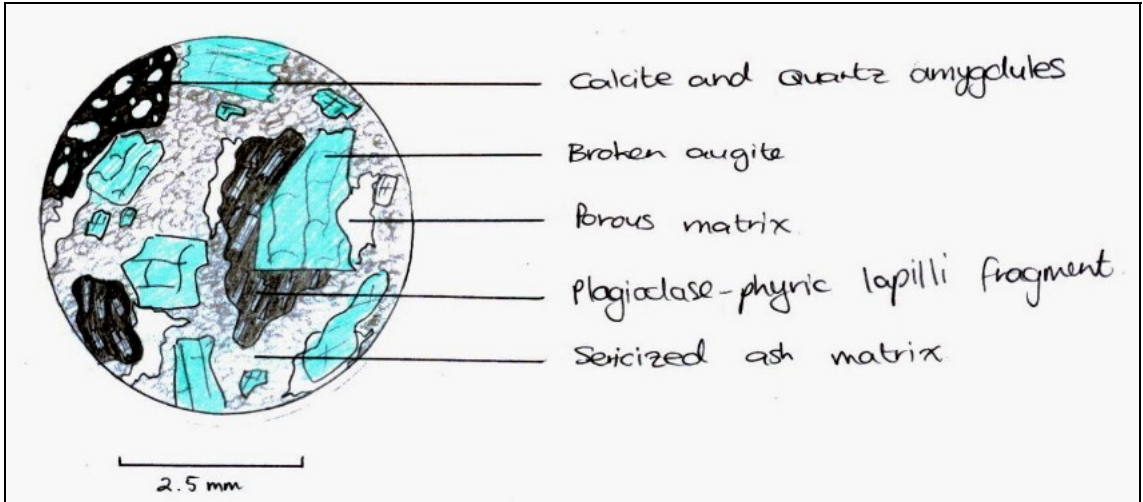 Calcite and Quartz amygdules
Broken augite
Porous matrix
Plagioclase-phyric lapilli fragment
Sericized ash matrix
2.5 mm